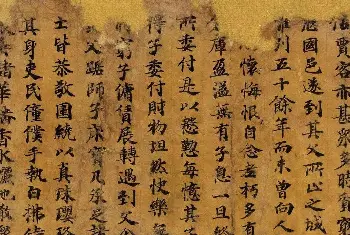 賈客亦甚衆多時貧窮
歷國邑遂到其父所止之城
離別五十餘年而未曾向人
懷悔恨自念老朽多有
庫盈溢無有子息一旦終
所委付是以慇懃每憶其
得子委付財物坦然快樂
窮子傭賃展轉遇到父舍
父踞師子床寶几承足諸
士皆恭敬圍繞以真珠瓔珞
其身吏民僮僕手執白拂侍
諸華幡香水灑地散衆